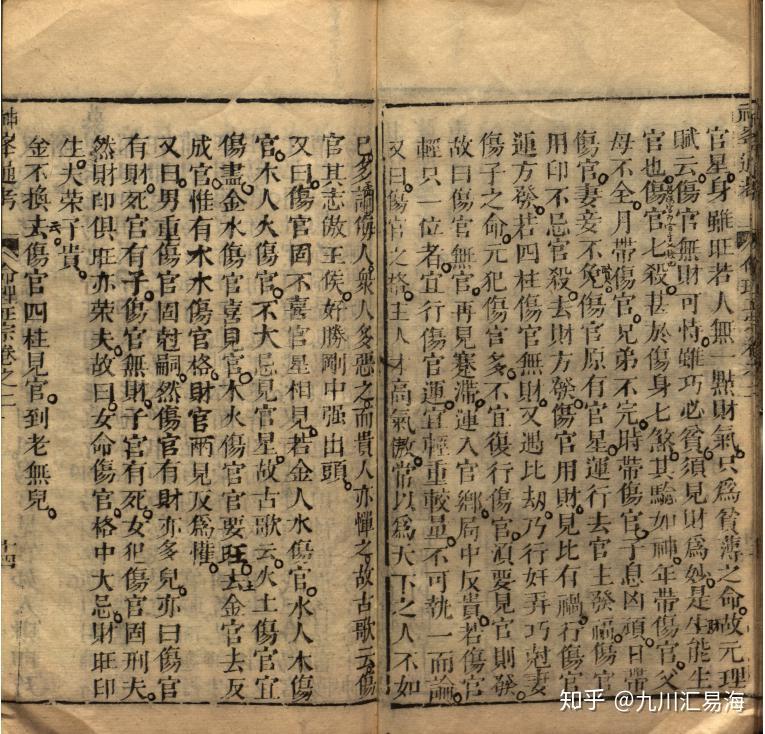 官星身雖旺若人無一點財氣只為貧薄之命故元理
賦云傷官無財可恃雖巧必貧須見財為妙是生能生
官也傷官七殺甚於傷身七煞其驗如神年帶傷官父
母不全月帶傷官兄弟不完時帶傷官子息凶頑日帶
傷官妻妾不免傷官原有官星運行去官主發福傷官
用印不忌官殺去財方發傷官用財見比有禍行傷官
運方發若四柱傷官無財又遇比刼乃行奸弄巧尅妻
傷子之命元犯傷官多不宜復行傷官須要見官則發
故曰傷官無官再見蹇滯運入官鄉局中反貴若傷官
輕只一位者宜行傷官運宜輕重較量不可執一而論
又曰傷官之格主人才高氣傲常以為天下之人不如
已多謫侮人衆人多惡之而貴人亦憚之故古歌云傷
官其志傲王侯好勝剛中强出頭
又曰傷官固不喜官星相見若金人水傷官水人木傷
官木人火傷官不大忌見官星故古歌云火土傷官宜
傷盡金水傷官喜見官木火傷官官要旺土金官去反
成官惟有水木傷官格財官兩見反為懽
又曰男重傷官固尅嗣然傷官有財亦多兒亦曰傷官
有財死官有子傷官無財子官有死女犯傷官固刑夫
然財印俱旺亦荣夫故曰女命傷官格中大忌財旺印
生夫荣子貴
金不換云傷官四柱見官到老無兒
神峯通考
命理正宗卷之二
十四
知乎 @九川汇易海